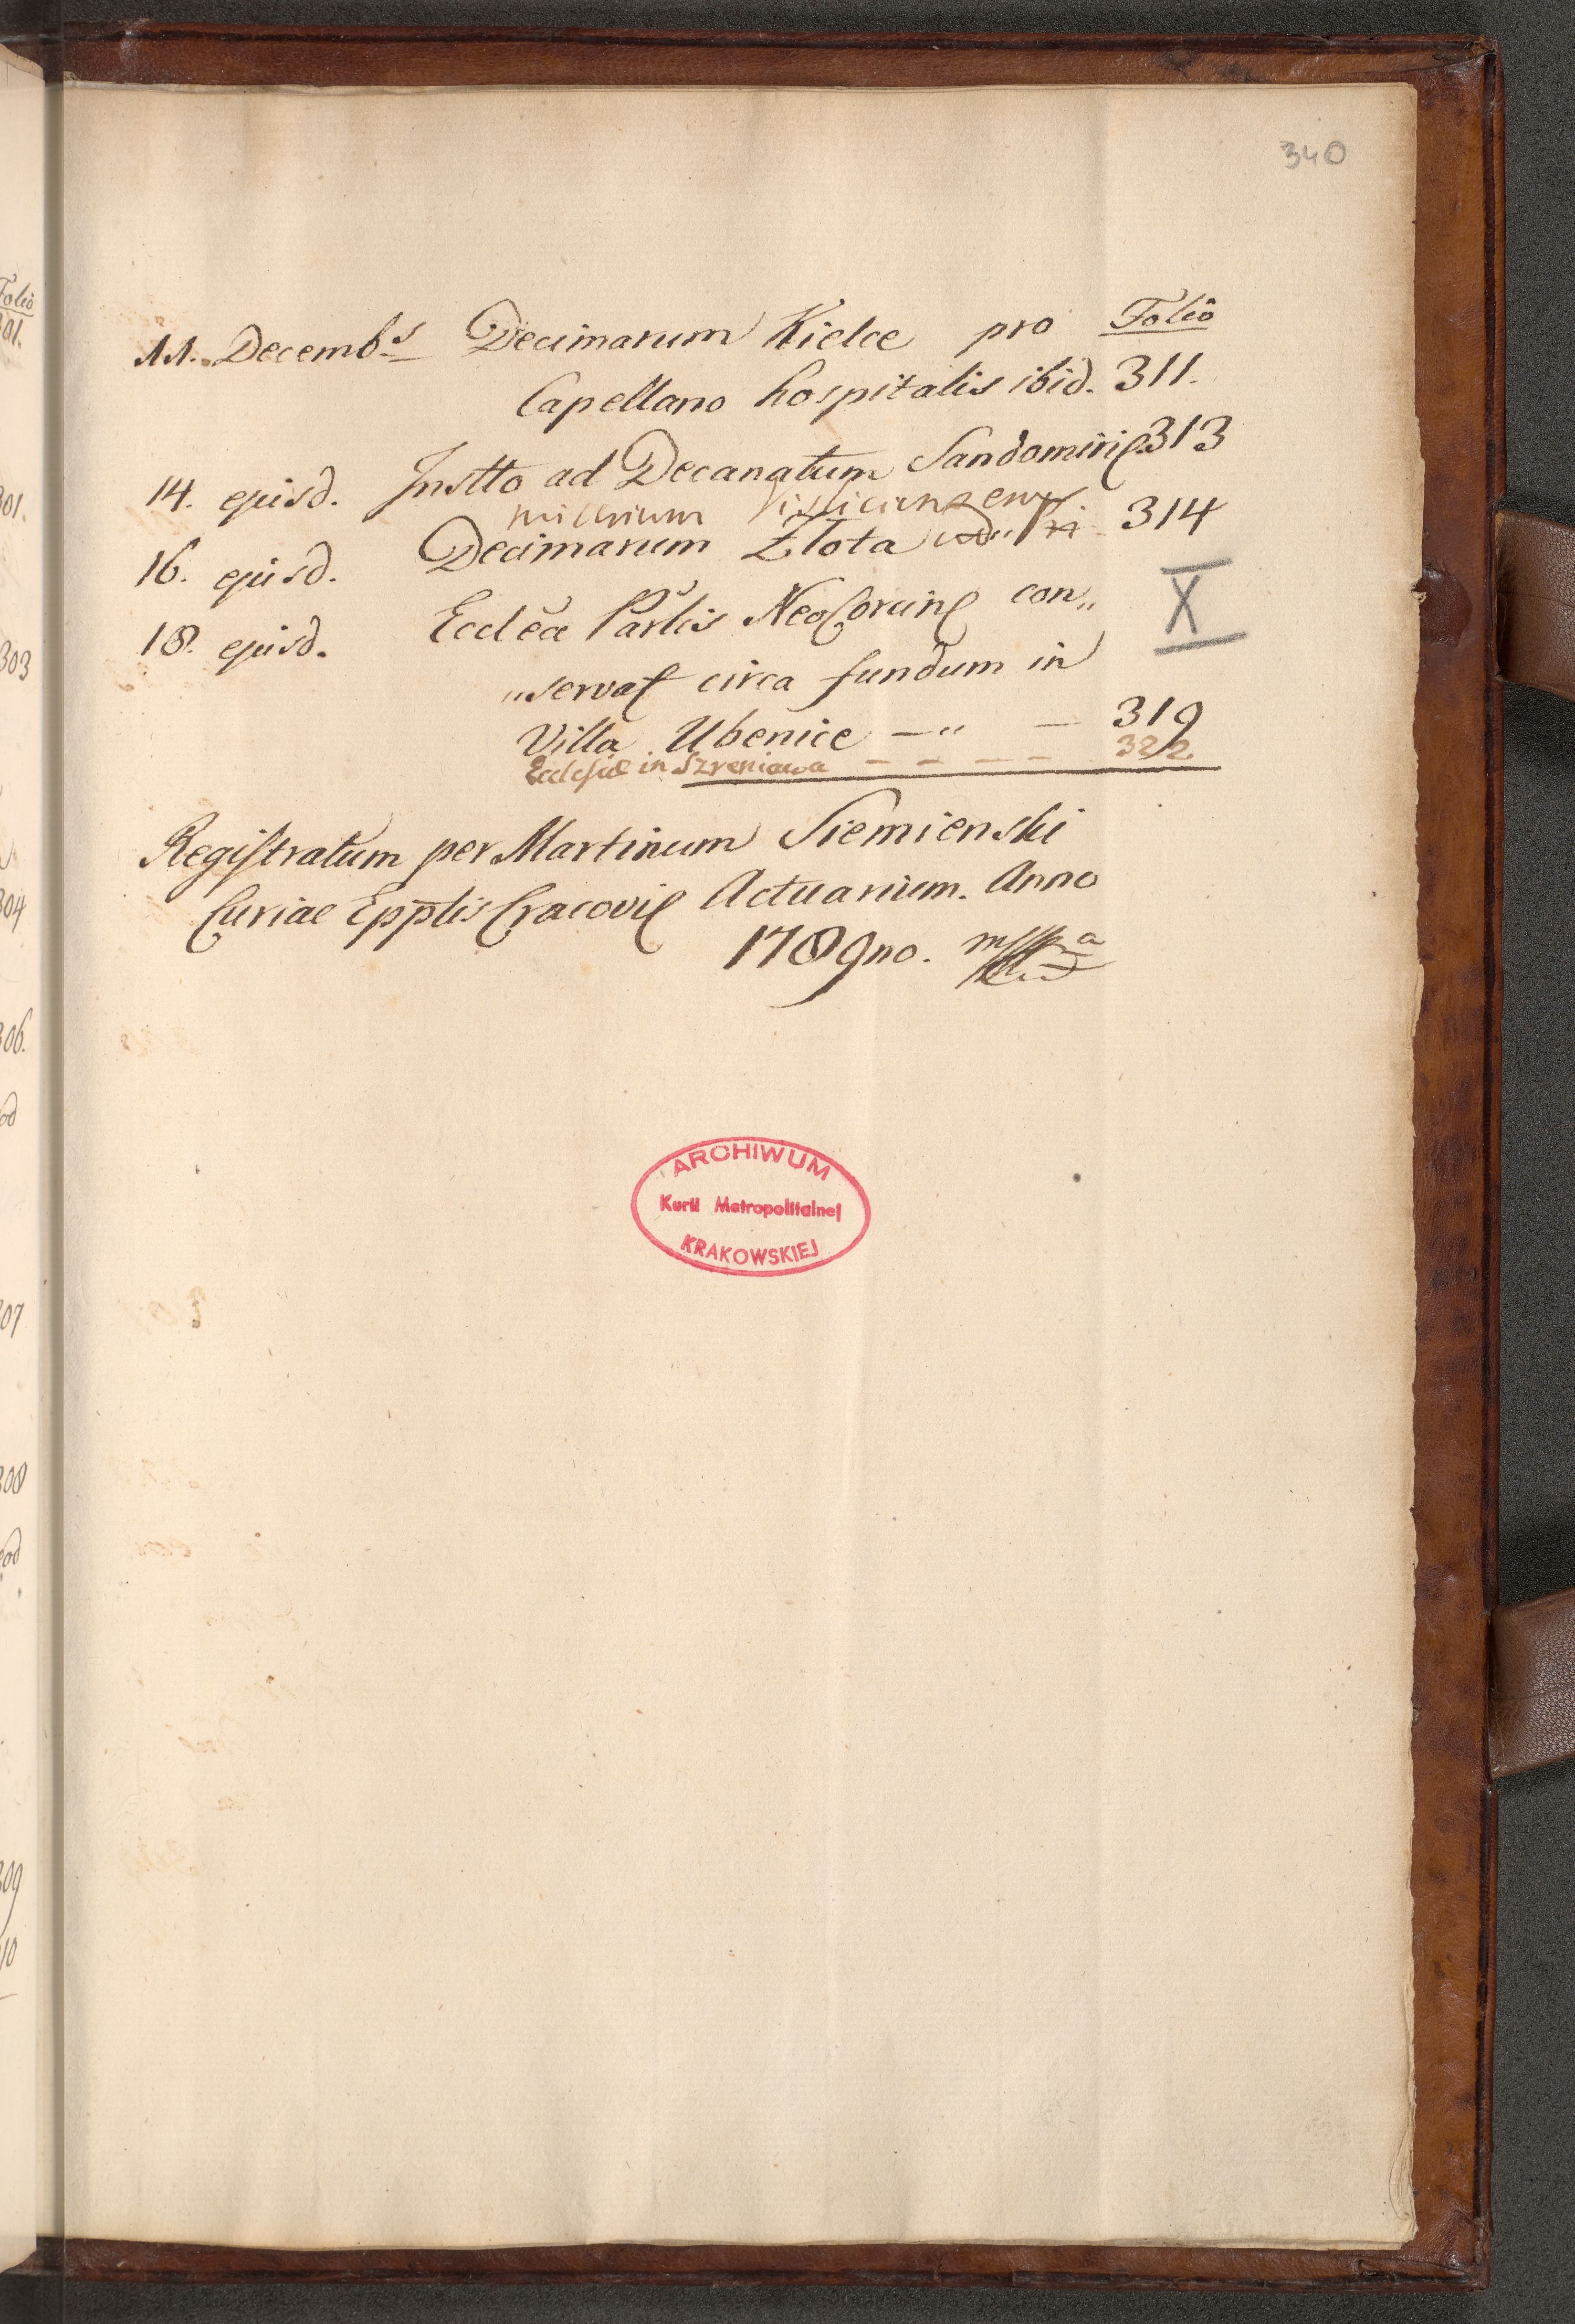 340
Folio
11. Decemb.s Decimarum Kielce pro
Capellano hospitalis ibid. 311.
14. ejusd. Instto ad Decanatum Sandomiri 313
16. ejusd. Decimarum Złota 314
18. ejusd. Ecclēa Parlis NeoCorcin con„
„servat circa fundum in
Villa Ubenice —„ — 319
Ecclesiæ in Szreniawa — — — — 322
X
Registratum per Martinum Siemienski
Curiae Epplis Cracovi Actuarium. Anno
1789no. mppa
ARCHIWUM
Kurii Metropolitalnej
KRAKOWSKIEJ
Folio
301.
301.
303
304
306.
eod
307
308
eod
309
310